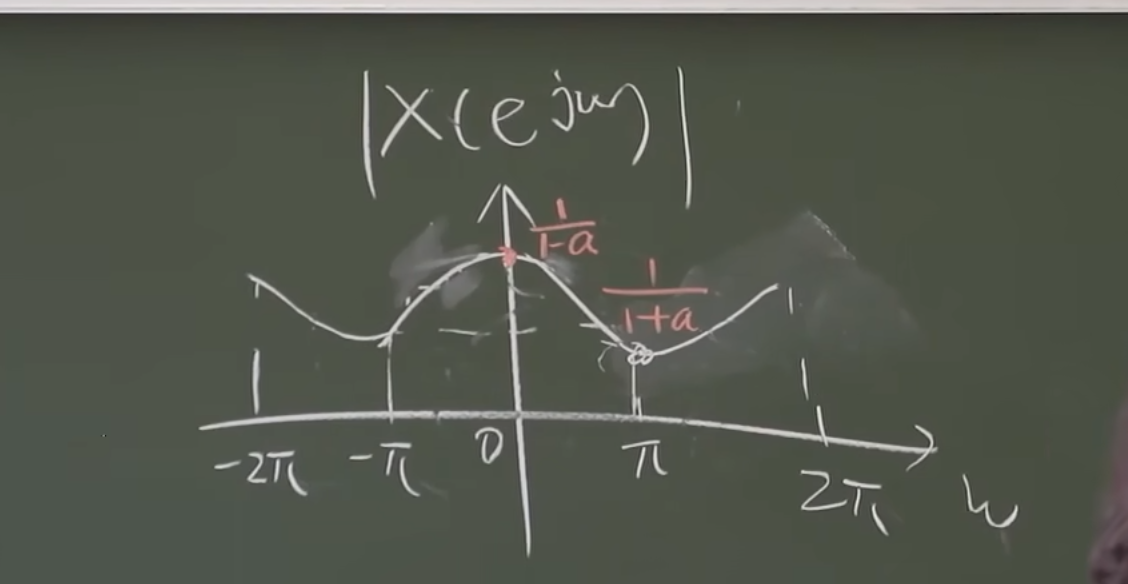 |X(e^{jω})|
1/(1-a)
1/(1+a)
-2π -π 0 π 2π ω